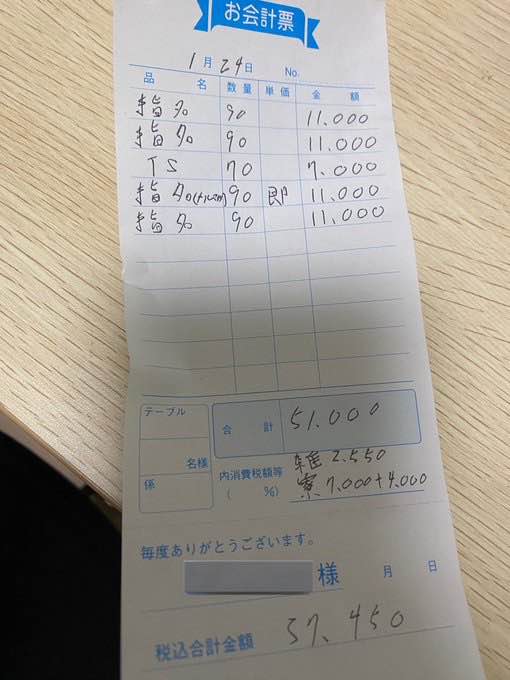 お会計票
1月24日 No.
品名 数量 単価 金額
指名 90 11.000
指名 90 11.000
TS 70 7.000
指名(トルマリ) 90 即 11.000
指名 90 11.000
テーブル
名様
係
合計 51.000
内消費税額等
( %)
雑 2.550
寮 7.000+4.000
毎度ありがとうございます。
様 月 日
税込合計金額 37.450